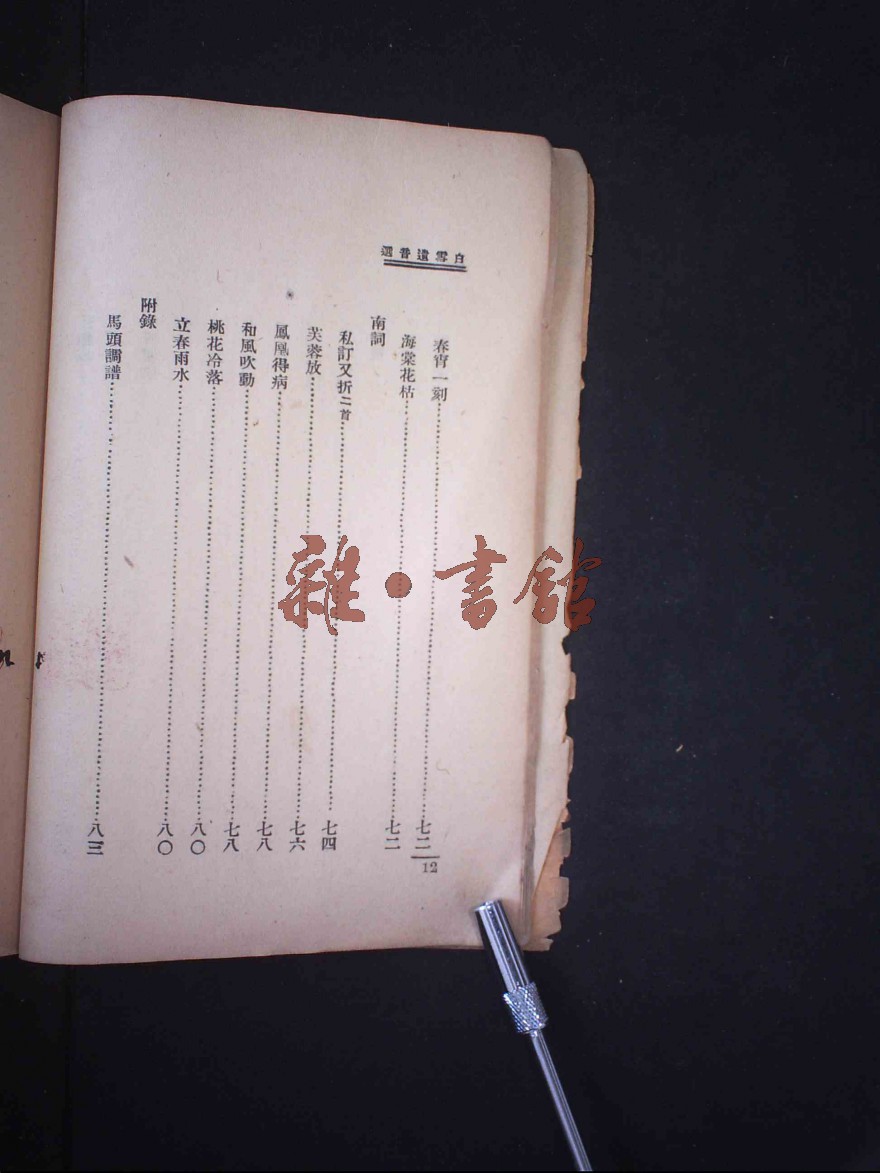 白雪遺音選
春宵一刻…………七二
海棠花枯…………七二
南詞
私訂又折二首…………七四
芙蓉放…………七六
鳳凰得病…………七八
和風吹動…………七八
桃花冷落…………八〇
立春雨水…………八〇
附錄
馬頭調譜…………八三
12
雜·書館